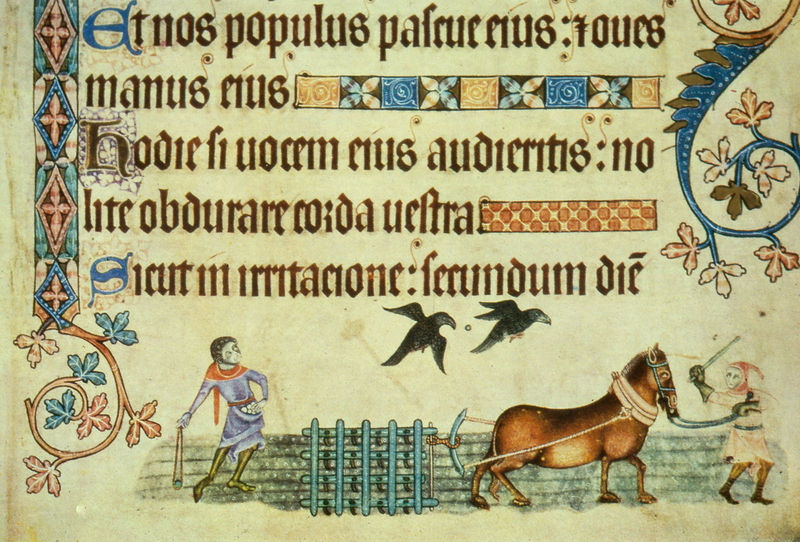 Et nos populus pascue eius : ⁊ oues
manus eius.
Hodie si uocem eius audieritis : no
lite obdurare corda uestra.
Sicut in irritacione : secundum diē